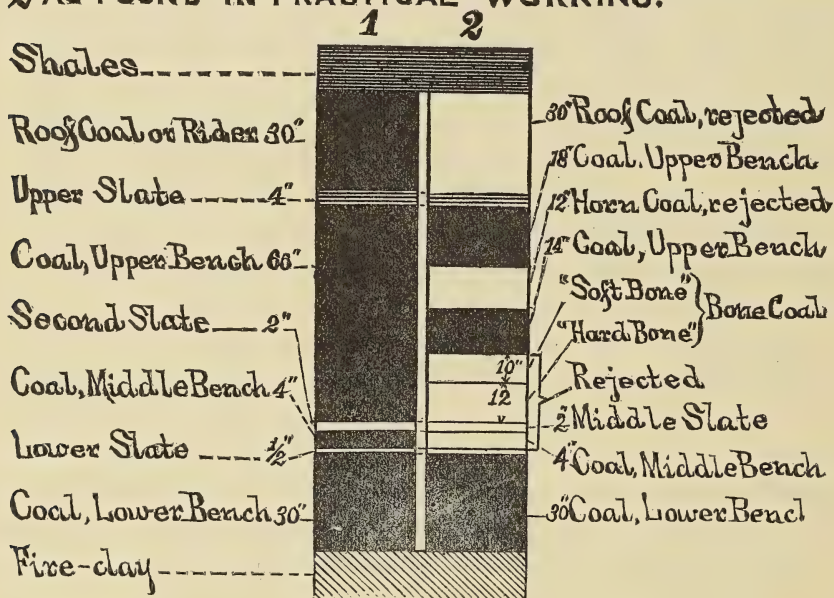 2 AS FOUND IN PRACTICAL WORKING.
1 2
Shales
Roof Coal or Rider 30"
Upper Slate 4"
Coal, Upper Bench 66"
Second Slate 2"
Coal, Middle Bench 4"
Lower Slate 1/2"
Coal, Lower Bench 30"
Fire-clay
10"
12
30" Roof Coal, rejected
18" Coal, Upper Bench
12" Horn Coal, rejected
14" Coal, Upper Bench
"Soft Bone"
"Hard Bone"
Bone Coal
Rejected
2" Middle Slate
4" Coal, Middle Bench
30" Coal, Lower Bencl